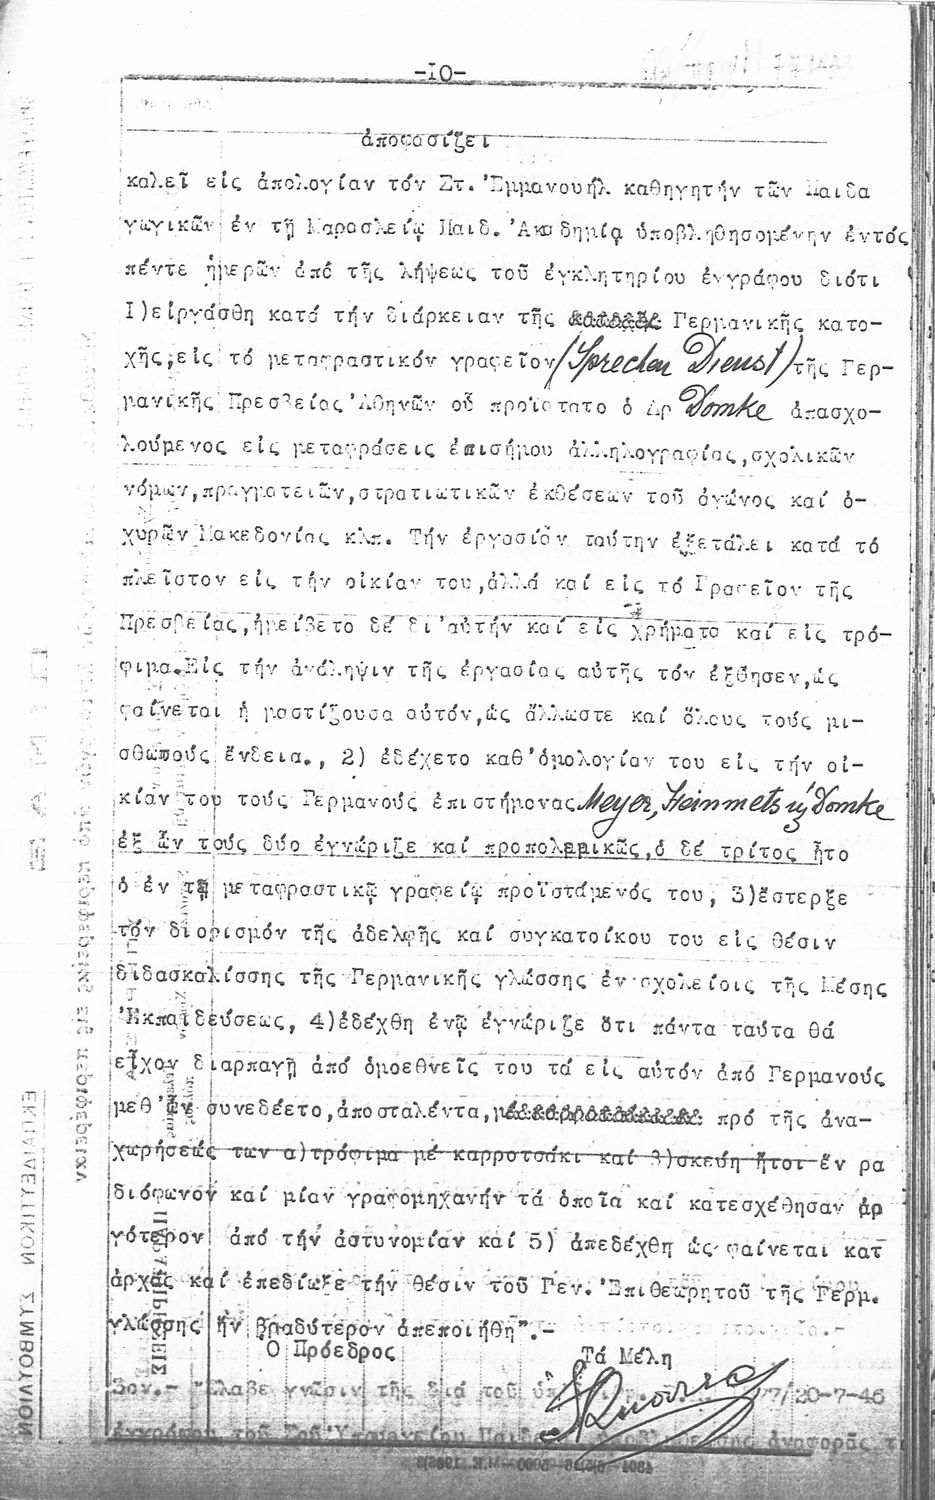 -10-
ἀποφασίζει
καλεῖ εἰς ἀπολογίαν τόν Στ. Ἐμμανουήλ καθηγητήν τῶν Παιδα
γωγικῶν ἐν τῇ Μαρασλείῳ Παιδ. Ἀκαδημίᾳ ὑποβληθησομένην ἐντός
πέντε ἡμερῶν ἀπό τῆς λήψεως τοῦ ἐγκλητηρίου ἐγγράφου διότι
1)εἰργάσθη κατά τήν διάρκειαν τῆς Γερμανικῆς κατο-
χῆς,εἰς τό μεταφραστικόν γραφεῖον (Sprechen Dienst) τῆς Γερ-
μανικῆς Πρεσβείας Ἀθηνῶν οὗ προΐστατο ὁ Δρ Domke ἀπασχο-
λούμενος εἰς μεταφράσεις ἐπισήμου ἀλληλογραφίας,σχολικῶν
νόμων,πραγματειῶν,στρατιωτικῶν ἐκθέσεων τοῦ ἀγῶνος καί ὀ-
χυρῶν Μακεδονίας κλπ. Τήν ἐργασίαν ταύτην ἐξετάλει κατά τό
πλεῖστον εἰς τήν οἰκίαν του,ἀλλά καί εἰς τό Γραφεῖον τῆς
Πρεσβείας,ἠμείβετο δέ δι'αὐτήν καί εἰς χρήματα καί εἰς τρό-
φιμα.Εἰς τήν ἀνάληψιν τῆς ἐργασίας αὐτῆς τόν ἐξθησεν,ὡς
φαίνεται ἡ μαστίζουσα αὐτόν,ὡς ἄλλωστε καί ὅλους τούς μι-
σθωτούς ἔνδεια., 2) ἐδέχετο καθ'ὁμολογίαν του εἰς τήν οἰ-
κίαν του τούς Γερμανούς ἐπιστήμονας Meyer, Heinmets ἤ Domke
ἐξ ὧν τούς δύο ἐγνώριζε καί προπολεμικῶς,ὁ δέ τρίτος ἦτο
ὁ ἐν τῷ μεταφραστικῷ γραφείῳ προϊστάμενός του, 3)ἔστερξε
τόν διορισμόν τῆς ἀδελφῆς καί συγκατοίκου του εἰς θέσιν
διδασκαλίσσης τῆς Γερμανικῆς γλώσσης ἐν σχολείοις τῆς Μέσης
Ἐκπαιδεύσεως, 4)ἐδέχθη ἐνῷ ἐγνώριζε ὅτι πάντα ταῦτα θά
εἶχον διαρπαγῆ ἀπό ὁμοεθνεῖς του τά εἰς αὐτόν ἀπό Γερμανούς
μεθ'ὧν συνεδέετο,ἀποσταλέντα, πρό τῆς ἀνα-
χωρήσεώς των α)τρόφιμα μέ καρροτσάκι καί β)σκεύη ἤτοι ἕν ρα
διόφωνον καί μίαν γραφομηχανήν τά ὁποῖα καί κατεσχέθησαν ἀρ
γότερον ἀπό τήν ἀστυνομίαν καί 5) ἀπεδέχθη ὡς φαίνεται κατ
ἀρχάς καί ἐπεδίωξε τήν θέσιν τοῦ Γεν. Ἐπιθεωρητοῦ τῆς Γερμ.
γλώσσης ἥν βραδύτερον ἀπεποιήθη".-
Ὁ Πρόεδρος Τά Μέλη
3ον.- Ἔλαβε γνῶσιν τῆς διά τοῦ 77/20-7-46
ἐγγράφου τοῦ Ὑπουργείου Παιδείας ἀναφορᾶς